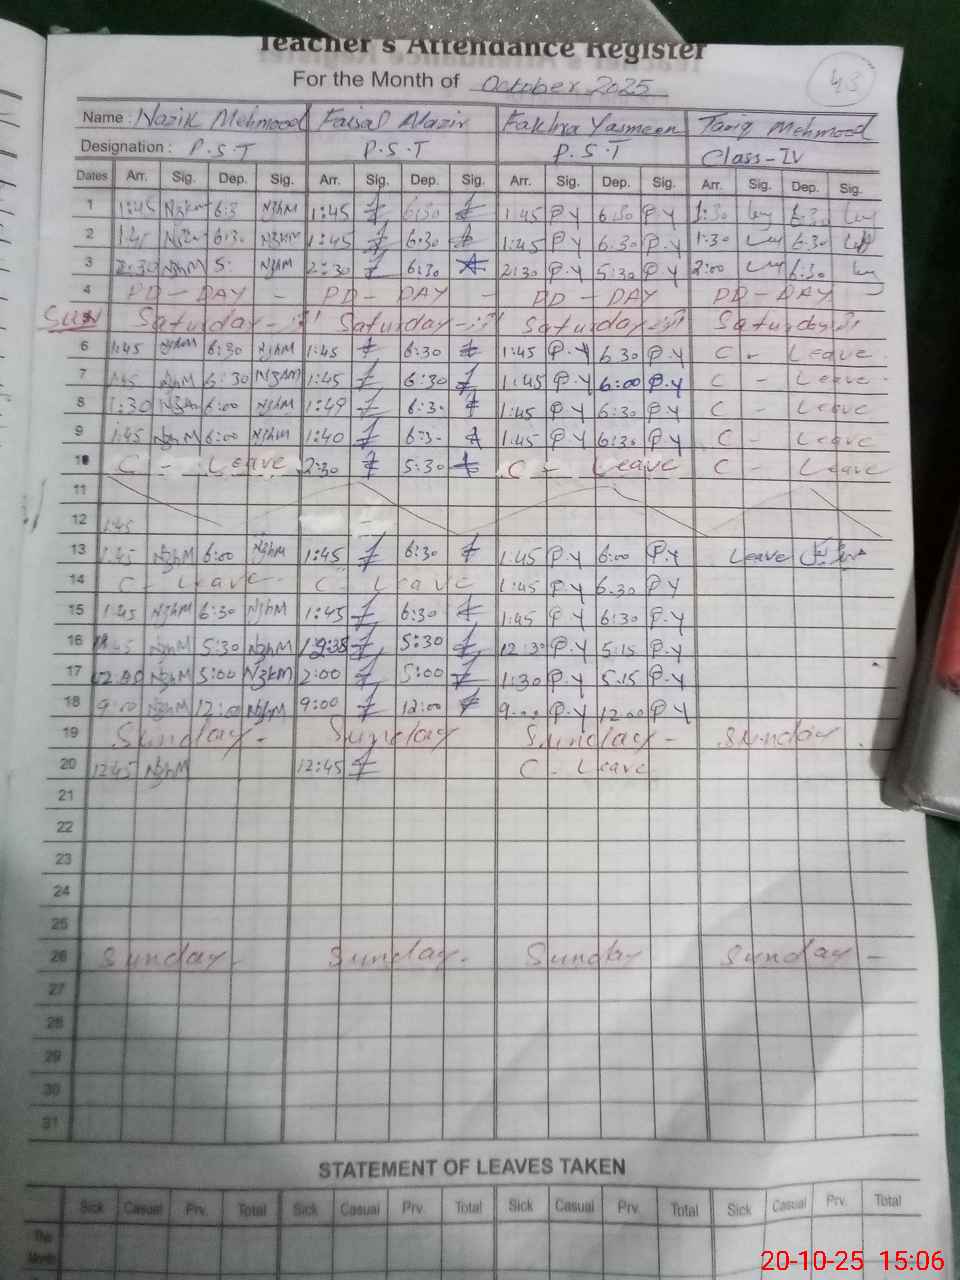 Teacher's Attendance Register
For the Month of October 2025
43
Name : Nazik Mehmood Faisal Nazir Fakhra Yasmeen Tariq Mehmood
Designation : P.S.T P.S.T P.S.T Class-IV
Dates Arr. Sig. Dep. Sig. Arr. Sig. Dep. Sig. Arr. Sig. Dep. Sig. Arr. Sig. Dep. Sig.
1 1:45 6:3 NzhM 1:45 6:30 1:45 P.Y 6:30 P.Y 1:30 6:30
2 1:45 6:30 NzhM 1:45 6:30 1:45 P.Y 6:30 P.Y 1:30 6:30
3 2:30 NzhM 5: NzhM 2:30 6:30 2:30 P.Y 5:30 P.Y 2:00 6:30
4 PD-DAY - PD-DAY - PD-DAY PD-DAY
Sun Saturday - Saturday - Saturday Saturday
6 1:45 NzhM 6:30 NzhM 1:45 6:30 1:45 P.Y 6.30 P.Y C - Leave
7 1:45 NzhM 6:30 NzhM 1:45 6:30 1:45 P.Y 6:00 P.Y C - Leave
8 1:30 6:00 NzhM 1:49 6:3. 1:45 P.Y 6:30 P.Y C - Leave
9 1:45 NzhM 6:00 NzhM 1:40 6:3- 1:45 P.Y 6:30 P.Y C - Leave
10 C - Leave 2:30 5:30 C - Leave C - Leave
11
12 1:45
13 1:45 NzhM 6:00 NzhM 1:45 6:30 1:45 P.Y 6:00 P.Y Leave
14 C - Leave C - Leave 1:45 P.Y 6.30 P.Y
15 1:45 NzhM 6:30 NzhM 1:45 6:30 1:45 P.Y 6:30 P.Y
16 NzhM 5:30 NzhM 5:30 12:30 P.Y 5:15 P.Y
17 NzhM 5:00 NzhM 2:00 5:00 1:30 P.Y 5.15 P.Y
18 9:00 NzhM 12:00 NzhM 9:00 12:00 9... P.Y 12.00 P.Y
19 Sunday - Sunday Sunday - Sunday
20 12:45 NzhM 12:45 C - Leave
21
22
23
24
25
26 Sunday - Sunday. Sunday Sunday -
27
28
29
30
31
STATEMENT OF LEAVES TAKEN
Sick Casual Prv. Total Sick Casual Prv. Total Sick Casual Prv. Total Sick Casual Prv. Total
This
Month
20-10-25 15:06